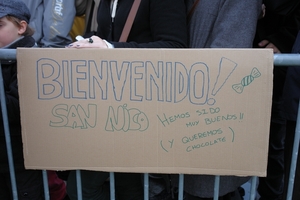 BIENVENIDO!
SAN NICO
HEMOS SIDO
MUY BUENOS!!
(Y QUEREMOS
CHOCOLATE)